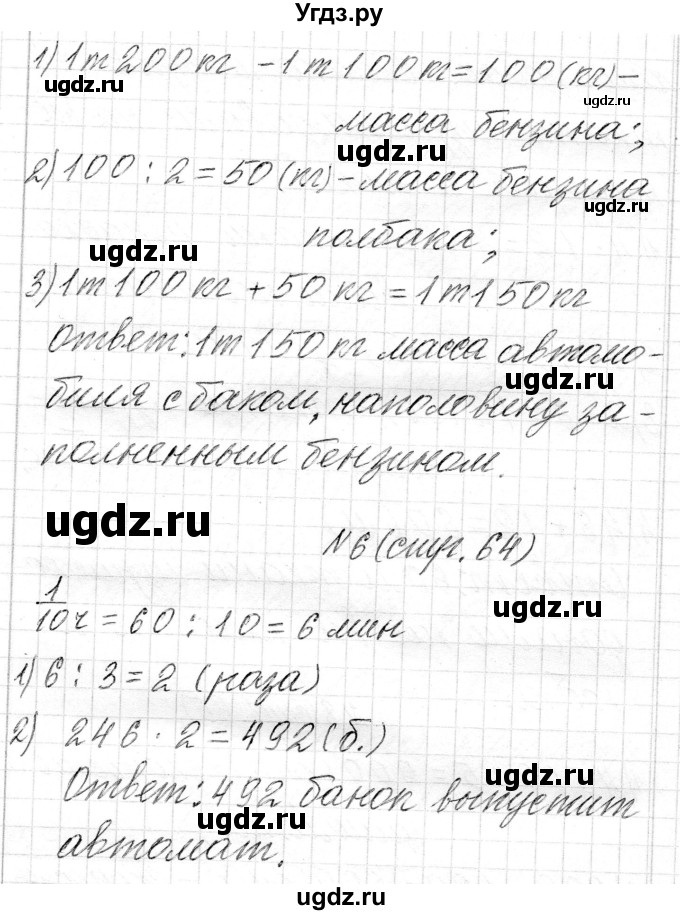 Угдз.ру
1) 1т 200 кг - 1 т 100 кг = 100 (кг) –
масса бензина;
2) 100 : 2 = 50 (кг) – масса бензина
полбака;
3) 1т 100 кг + 50 кг = 1т 150 кг
Ответ: 1т 150 кг масса автомо-
биля с баком, наполовину за-
полненным бензином.
№6 (стр. 64)
1/10 ч = 60 : 10 = 6 мин
1) 6 : 3 = 2 (раза)
2) 246 · 2 = 492 (б.)
Ответ: 492 банок выпустит
автомат.
ugdz.ru
ugdz.ru
ugdz.ru
ugdz.ru
ugdz.ru
ugdz.ru
ugdz.ru
ugdz.ru
ugdz.ru
ugdz.ru
ugdz.ru